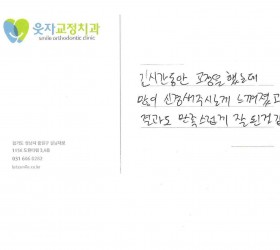 웃자교정치과
smile orthodontic clinic
긴시간동안 교정을 했는데
많이 신경써주시는게 느껴졌고
결과도 만족스럽게 잘 된것같